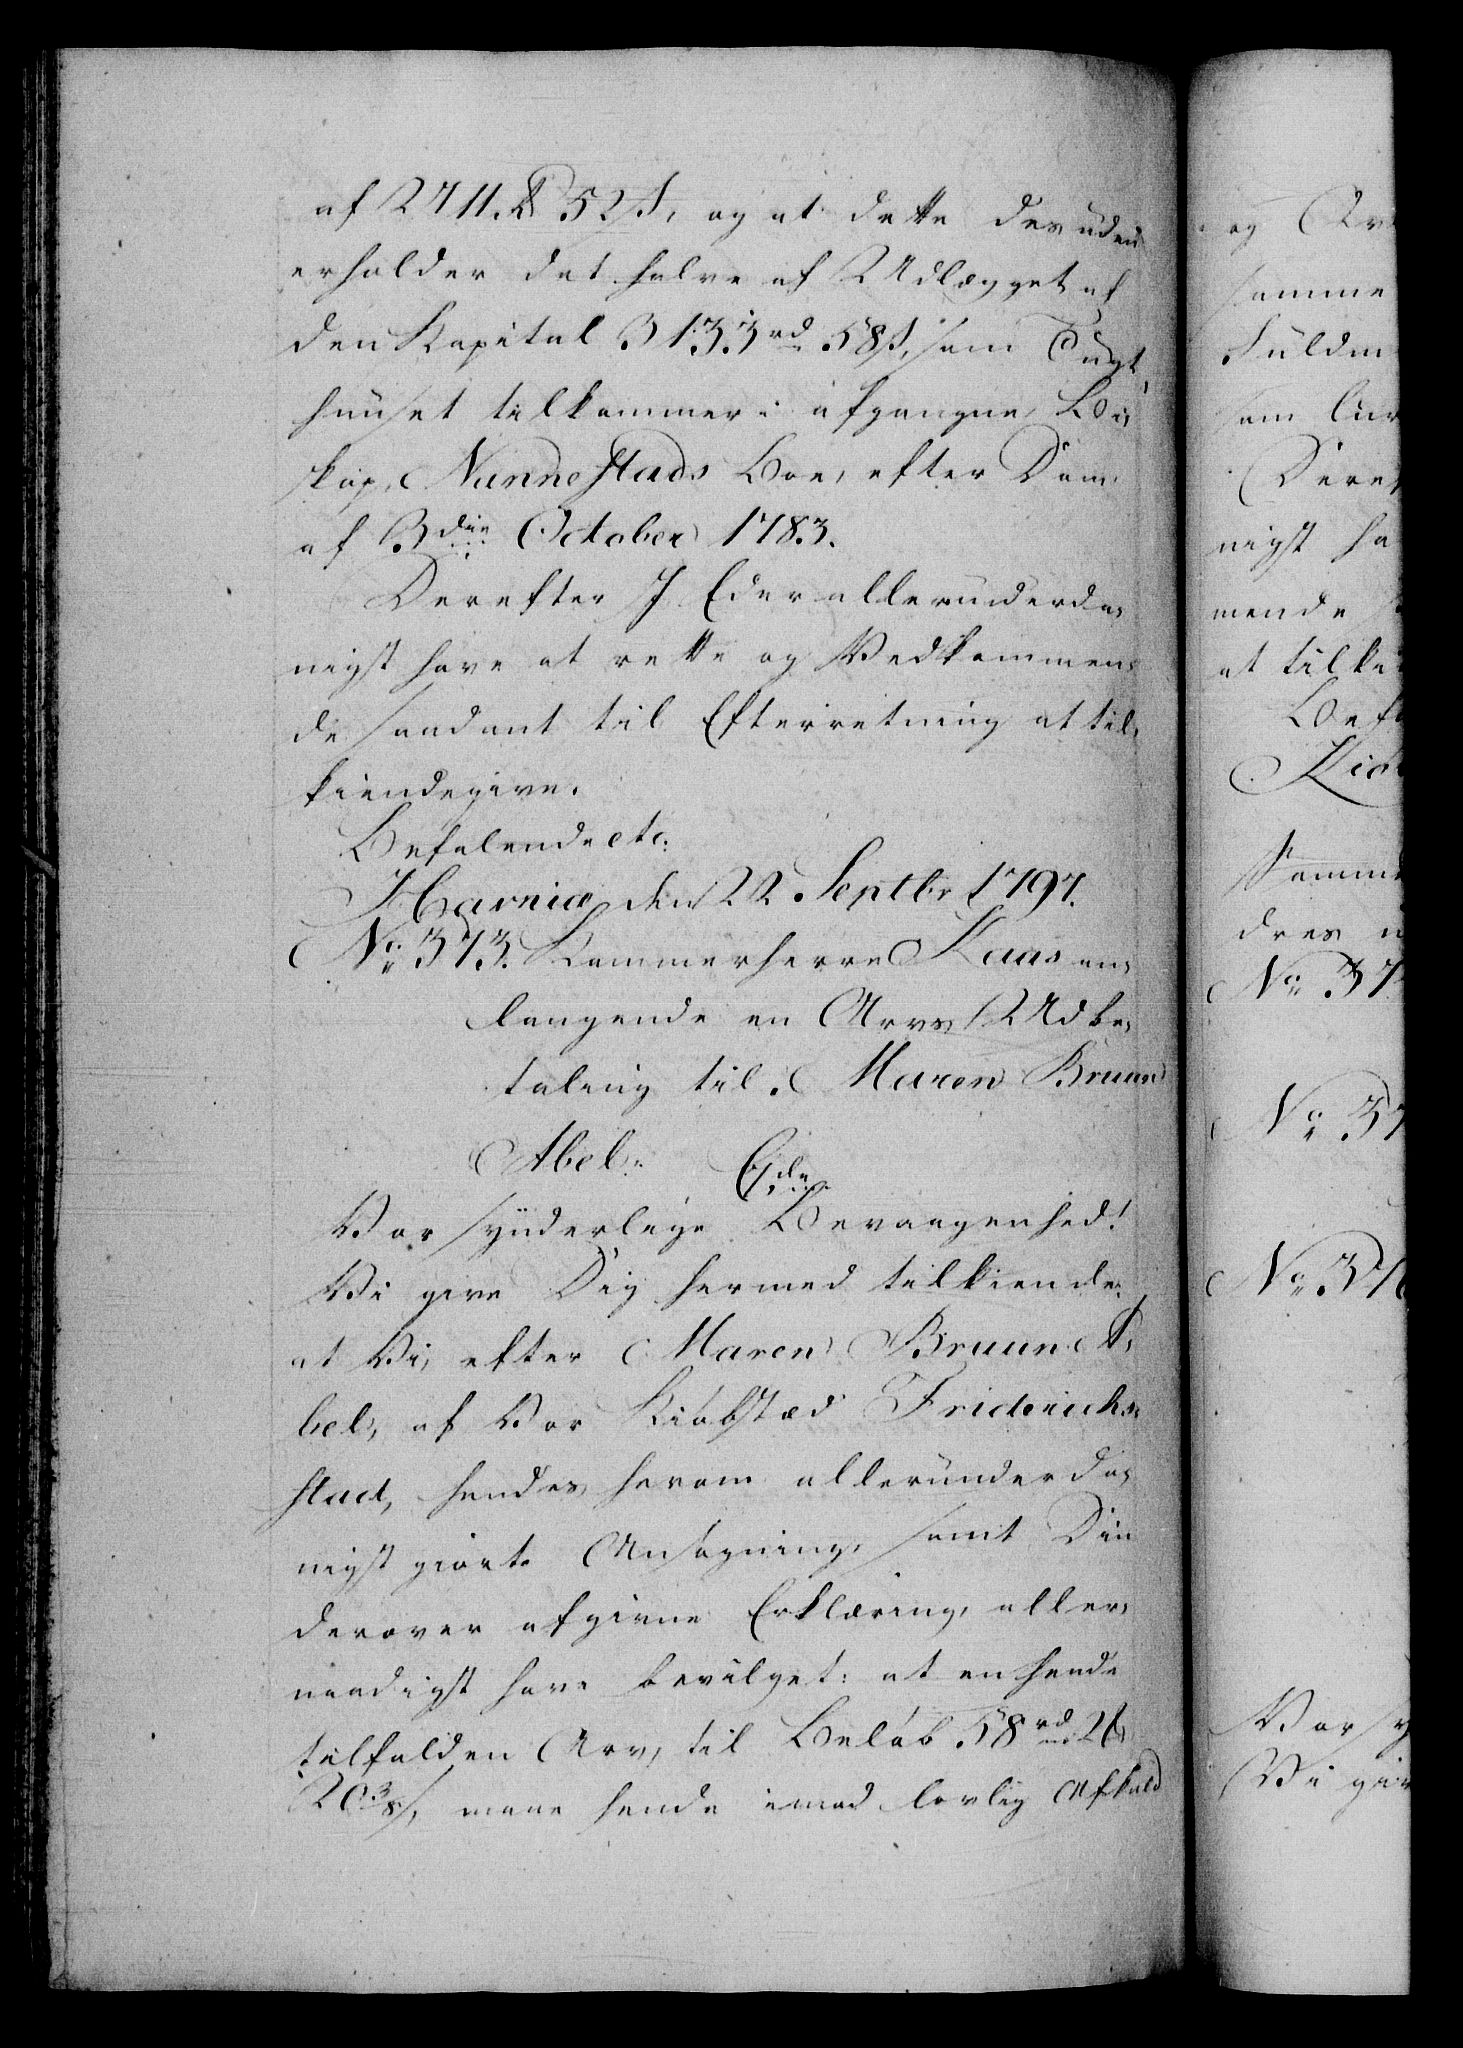 af 2711. rd 52 s, og at dette desuden
erholder det halve af Udlægget af
den Kapital 3133 rd 58 s, som Tugt,
huuset tilkommer i afgangne Bi,
skop, Nannestads Boe, efter Dom
af 3die October 1783.
Derefter I Eder allerunderda,
nigst have at rette og Vedkommen,
de saadant til Efterretning at til,
kiendegive.
Befalende etc:
Havniæ den 22 Septbr 1797.
No 373. Kammerherre Kaas an,
langende en Arvs Udbe,
taling til Maren Bruun
Abel.
Vor synderlige Gde Bevaagenhed!
Vi give Dig hermed tilkiende:
at Vi, efter Maren Bruun A,
bel, af Vor Kiøbstæd Friderichs,
stad, hendes herom allerunderda,
nigst giorte Ansøgning, samt Din
derover afgivne Erklæring, aller,
naadigst have bevilget: at en hende
tilfalden Arv, til Beløb 58 rd 2
20 3/8 s, maae hende imod lovlig Afkald
og
samme
Fuldm
som
nigst ha
mende
at tilki
Befa
No 37
No 37
No 376
Vor sy
Vi giv